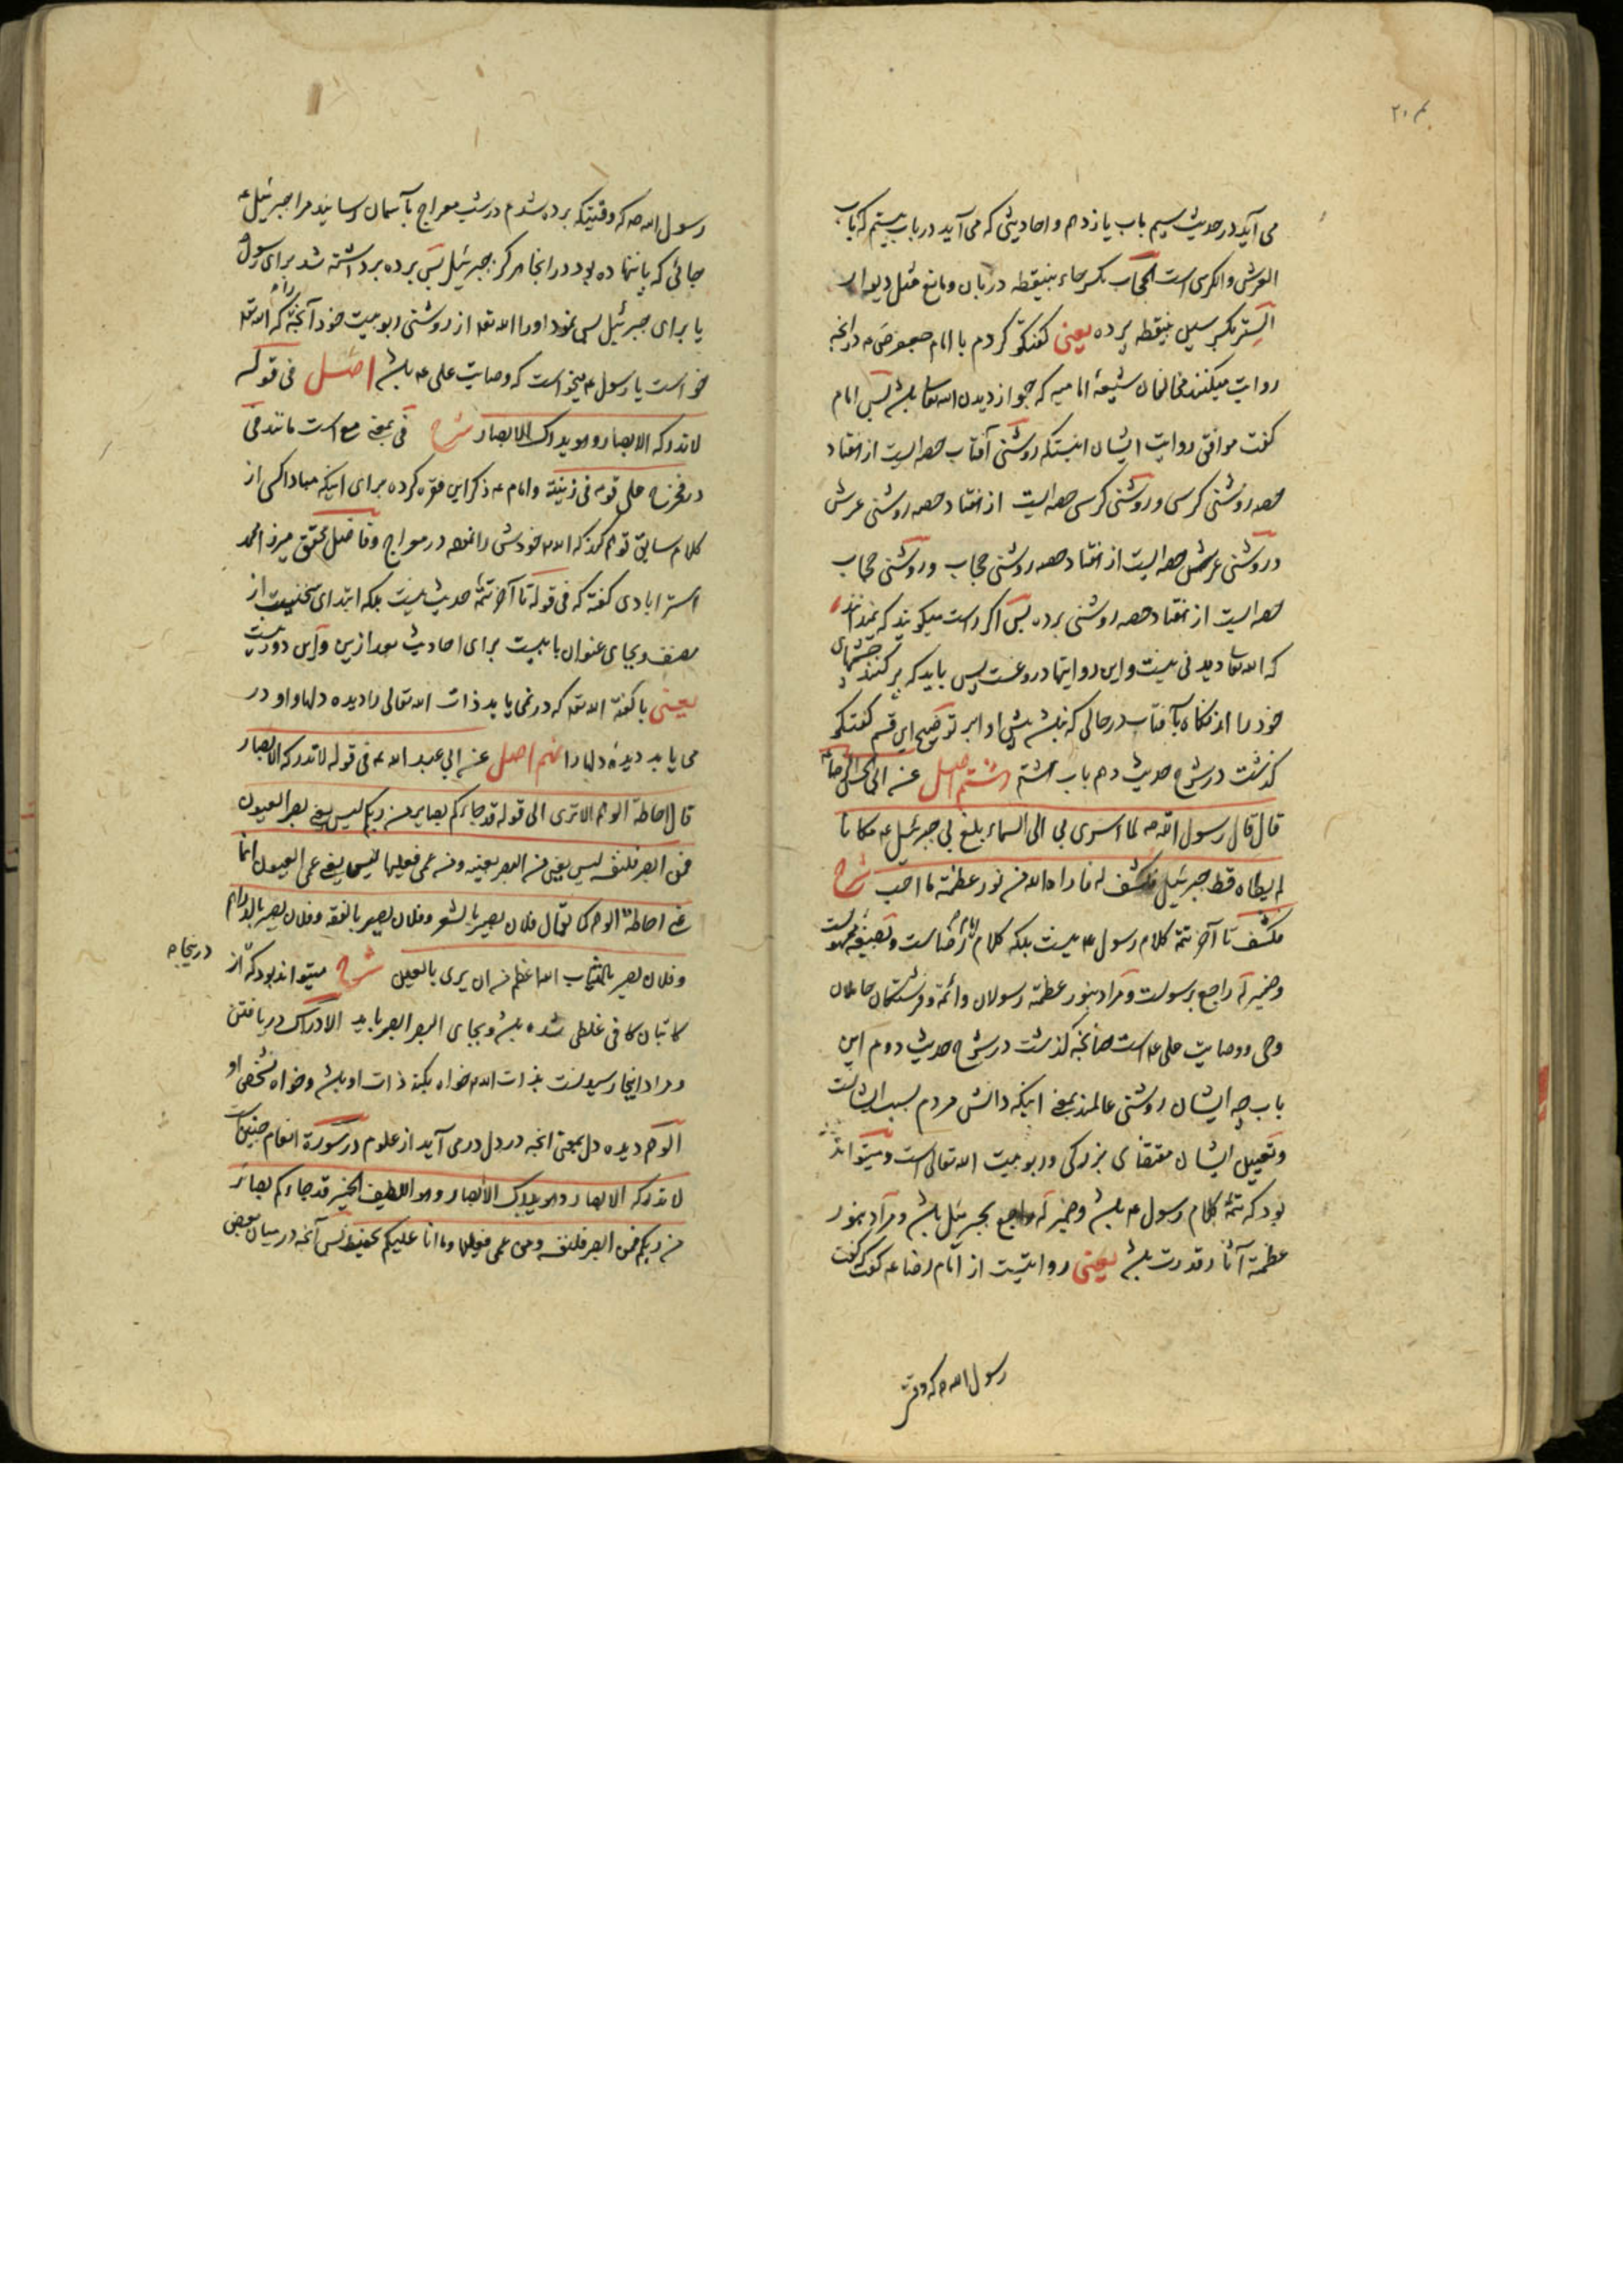 می آید در حدیث سیم باب یازدهم و احادیثی که می آید در باب بیستم که باب
العرش والکرسی است الحجاب بکسر حاء بینقطه دربان و مانع مثل دیوار
الستر بکسر سین بینقطه پرده یعنی گفتگو کردم با امام جعفر ص در آنچه
روایت میکنند مخالفان شیعهٔ امامیه که جواز دیدن الله تعا باشد پس امام
گفت موافق روایت ایشان اینستکه روشنی آفتاب حصه ایست از هفتاد
حصه روشنی کرسی و روشنی کرسی حصه ایست از هفتاد حصه روشنی عرش
و روشنی عرش حصه ایست از هفتاد حصه روشنی حجاب و روشنی حجاب
حصه ایست از هفتاد حصه روشنی پرده پس اگر راست میگویند که
که الله تعا دیدنی نیست و این روایتها دروغست پس باید که پر کنند چشمهای
خود را از نگاه بآفتاب در حالی که نباشد پیش او ابر توضیح این قسم گفتگو
گذشت در شرح حدیث دهم باب هشتم اصل عن ابی الحسن الرضا ع
قال قال رسول الله ص لما اسری بی الی السماء بلغ بی جبرئیل ع مکانا
لم یطاه قط جبرئیل فکشف له فاراه الله من نور عظمته ما احب شرح
فکشف تا آخر تتمهٔ کلام رسول ع نیست بلکه کلام امام رضاست و بصیغه مجهولست
و ضمیر له راجع برسولست و مراد بنور عظمته رسولان و ائمه و فرشتگان حاملان
وحی و وصایت علی ع است چنانچه گذشت در شرح حدیث دوم این
باب چه ایشان روشنی عالمند بمعنی اینکه دانش مردم بسبب ایشانست
و تعیین ایشان مقتضای بزرگی و ربوبیت الله تعالی است و میتواند
بود که تتمهٔ کلام رسول ع باشد و ضمیر له راجع بجبرئیل باشد و مراد بنور
عظمته آثار قدرت باشد یعنی روایتست از امام رضا ع گفت که گفت
رسول الله ص که وقتی
رسول الله ص که وقتیکه برده شدم در شب معراج بآسمان رسانید مرا جبرئیل ع
جائی که پا ننهاده بود در انجا هرگز جبرئیل پس پرده برداشته شد برای رسول
یا برای جبرئیل پس نمود او را الله تعا از روشنی ربوبیت خود آنچه که الله تعا
خواست یا رسول ع میخواست که وصایت علی ع باشد اصل فی قوله
لا تدرکه الابصار وهو یدرک الابصار شرح فی بمعنی مع است مانند فی
در فخرج علی قومه فی زینته و امام ع ذکر این فقره کرده برای اینکه مبادا کسی از
کلام سابق توهم کند که الله خودش را نموده در معراج و فاضل محقق میرزا محمد
استرابادی گفته که فی قوله تا آخر تتمهٔ حدیث نیست بلکه ابتدای سخنیست از
مصنف و بجای عنوان بابیست برای احادیث بعد ازین و این دور نیست
یعنی با گفته الله تعا که در نمی یابد ذات الله تعالی را دیده دلها و او در
می یابد دیدهٔ دلها را نهم اصل عن ابی عبد الله ع فی قوله لا تدرکه الابصار
قال احاطة الوهم الا تری الی قوله قد جاءکم بصایر من ربکم لیس یعنی بصر العیون
فمن ابصر فلنفسه لیس یعنی من البصر بعینه ومن عمی فعلیها لیس یعنی عمی العیون انما
عنی احاطة الوهم کما یقال فلان بصیر بالشعر وفلان بصیر بالفقه وفلان بصیر بالدراهم
وفلان بصیر بالثیاب الله اعظم من ان یری بالعین شرح میتواند بود که از
در اینجا
کاتبان کافی غلطی شده باشد و بجای البصر ابصر باید الادراک دریافتن
و مراد اینجا رسیدنست بذات الله خواه بکنه ذات او باشد و خواه بشخص او
الوهم دیده دل بمعنی آنچه در دل در می آید از علوم در سورة انعام چنین است
لا تدرکه الابصار وهو یدرک الابصار وهو اللطیف الخبیر قد جاءکم بصائر
من ربکم فمن ابصر فلنفسه ومن عمی فعلیها وما انا علیکم بحفیظ پس آنچه در میان بعض